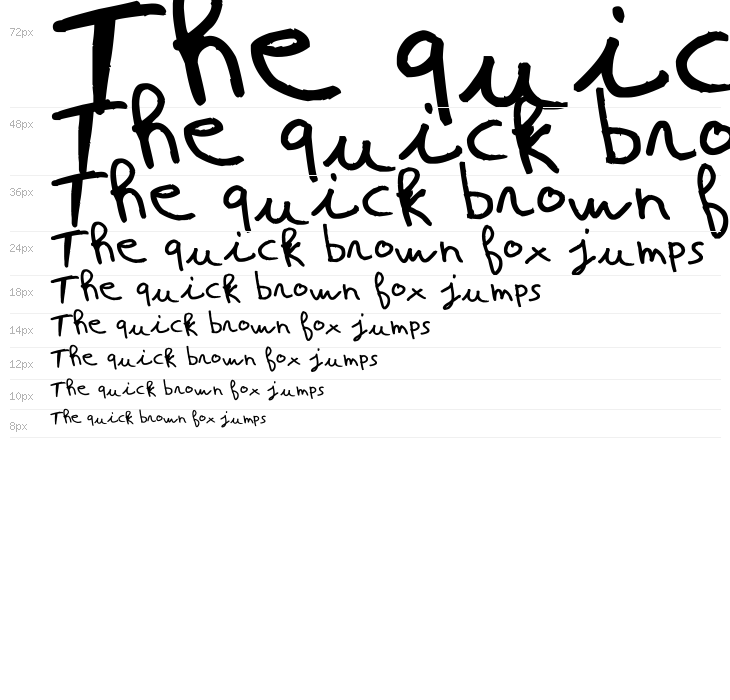 72px The quic
48px The quick bro
36px The quick brown f
24px The quick brown fox jumps
18px The quick brown fox jumps
14px The quick brown fox jumps
12px The quick brown fox jumps
10px The quick brown fox jumps
8px The quick brown fox jumps